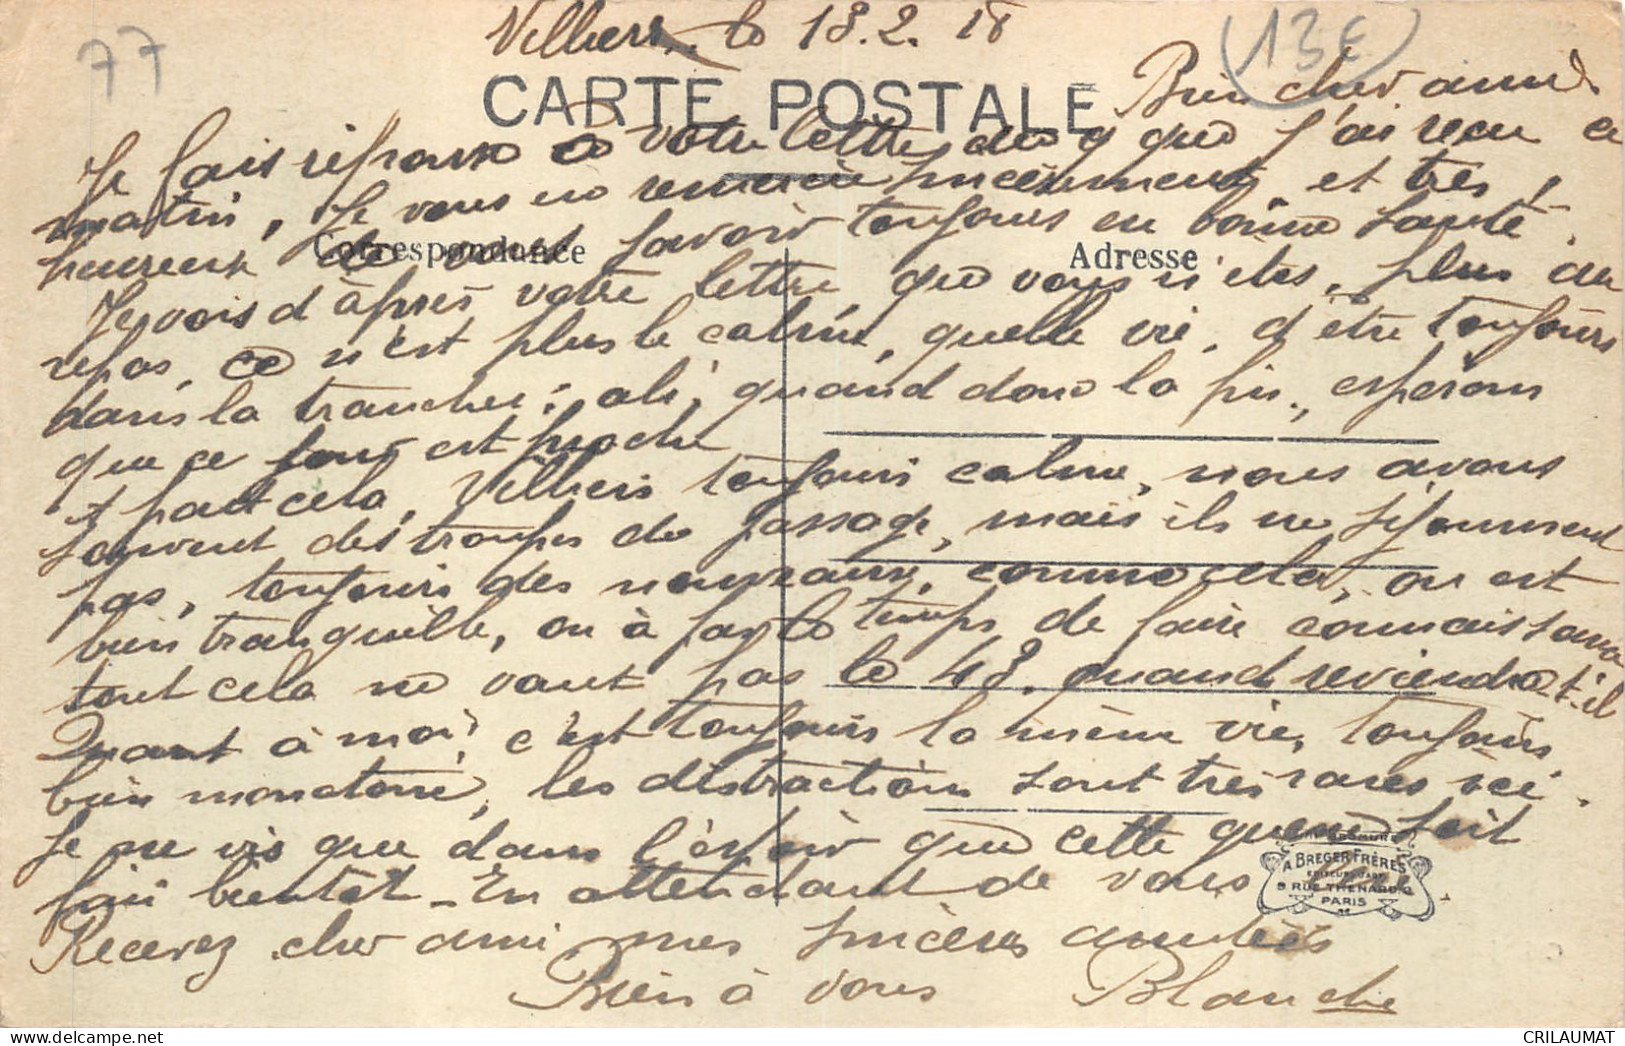 77
13€
Villiers le 18.2.18
CARTE POSTALE
Bien cher ami
Je fais réponse à votre lettre du 9 que j'ai recu ce
matin, Je vous en remercie sincèrement, et très,
heureuse de vous savoir toujours en bonne santé.
Correspondance
Adresse
Je vois d'après votre lettre que vous n'êtes, plus au
repos, ce n'est plus le calme, quelle vie, d'être toujours
dans la tranchee; ah, quand donc la fin, espérons
que ce jour est proche
A part cela, Villiers toujours calme, nous avons
souvent des troupes de passage, mais ils ne séjournent
pas, toujours des nouveaux, comme cela, on est
bien tranquille, on à pas le temps de faire connaissance
tout cela ne vaut pas le 48, quand reviendra-t-il
Quant à moi, c'est toujours la même vie, toujours
bien monotone, les distractions sont très rares ici.
Je ne vis que dans l'espoir que cette guerre soit
fini bientôt - En attendant de vous lire
A BREGER FRÈRES
9 RUE THENARD 9
PARIS
Recevez cher ami mes sincères amitiés
Bien à vous Blanche
CRILAUMAT